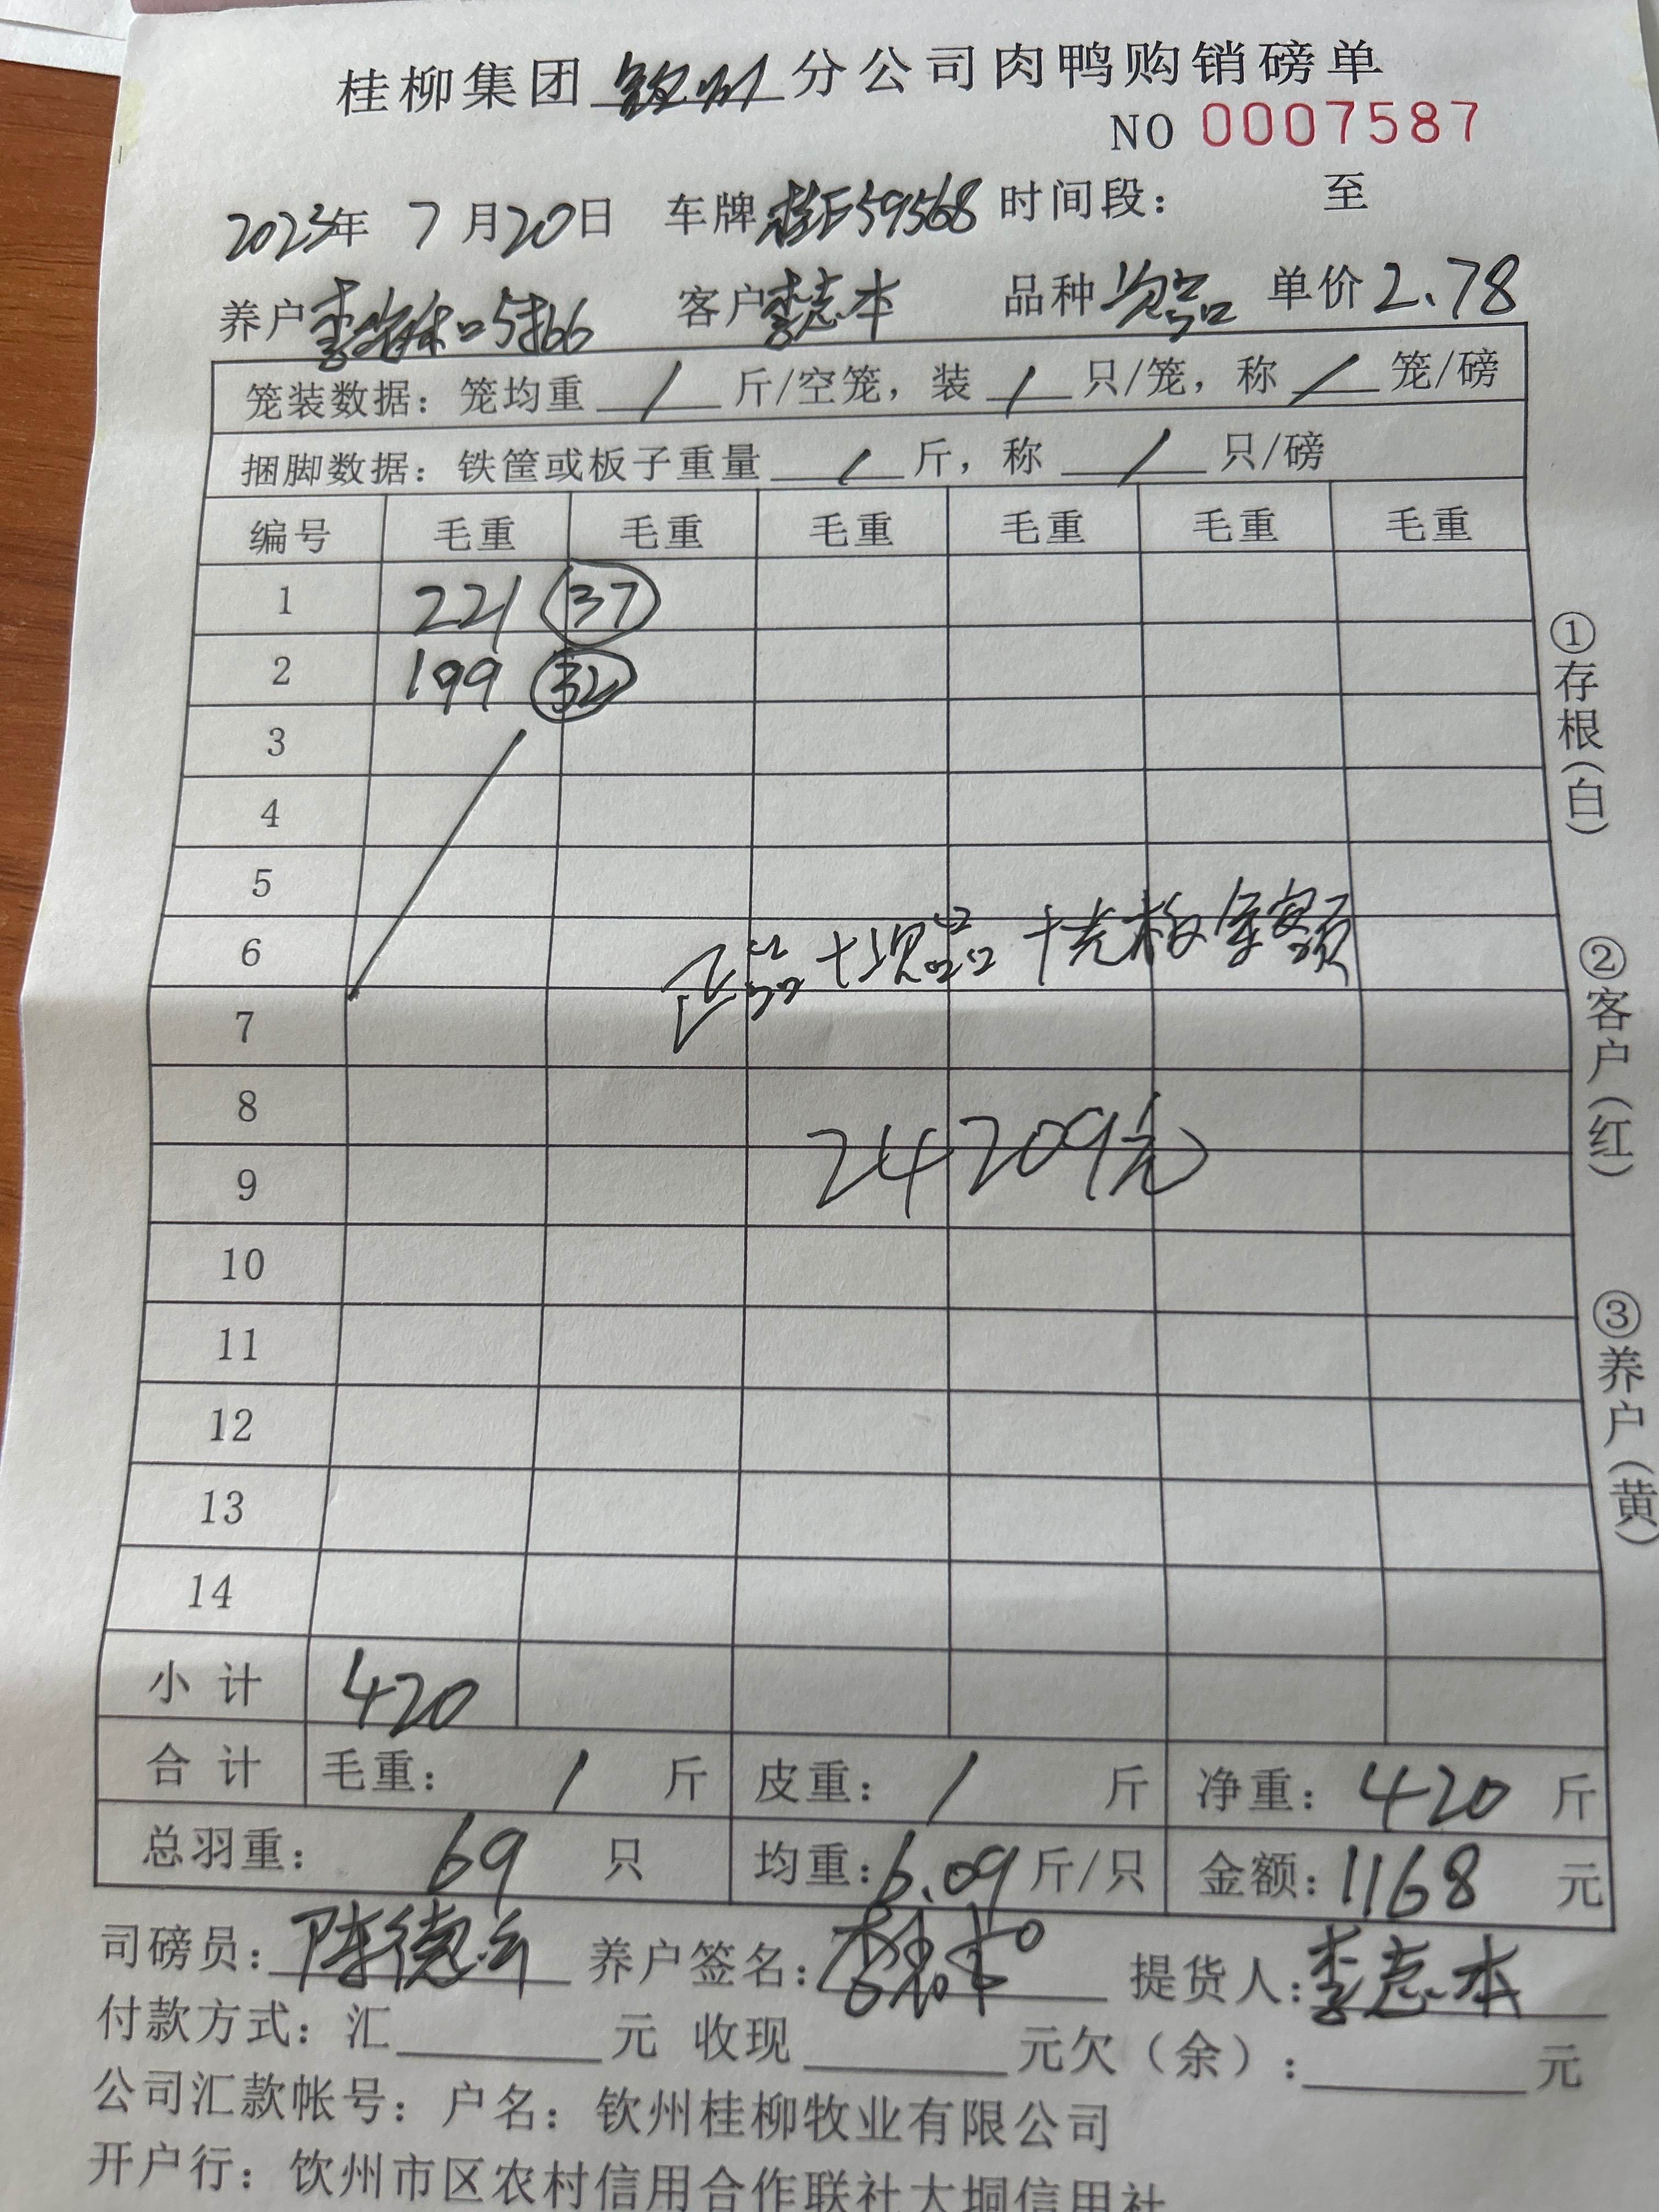 桂柳集团 钦州 分公司肉鸭购销磅单
NO 0007587
2023年 7 月 20 日 车牌 桂E59568 时间段： 至
养户 客户 李志本 品种 次品 单价 2.78
笼装数据：笼均重 / 斤/空笼，装 / 只/笼，称 / 笼/磅
捆脚数据：铁筐或板子重量 / 斤，称 / 只/磅
编号 毛重 毛重 毛重 毛重 毛重 毛重
1 221 37
2 199 32
3
4
5
6 正品+次品+ 金额
7
8
9 24209元
10
11
12
13
14
小计 420
合计 毛重： / 斤 皮重： / 斤 净重： 420 斤
总羽重： 69 只 均重：6.09 斤/只 金额：1168 元
司磅员：陈德 养户签名： 提货人：李志本
付款方式：汇 元 收现 元欠（余）： 元
公司汇款帐号：户名：钦州桂柳牧业有限公司
开户行：饮州市区农村信用合作联社大垌信用社
①存根（白）
②客户（红）
③养户（黄）